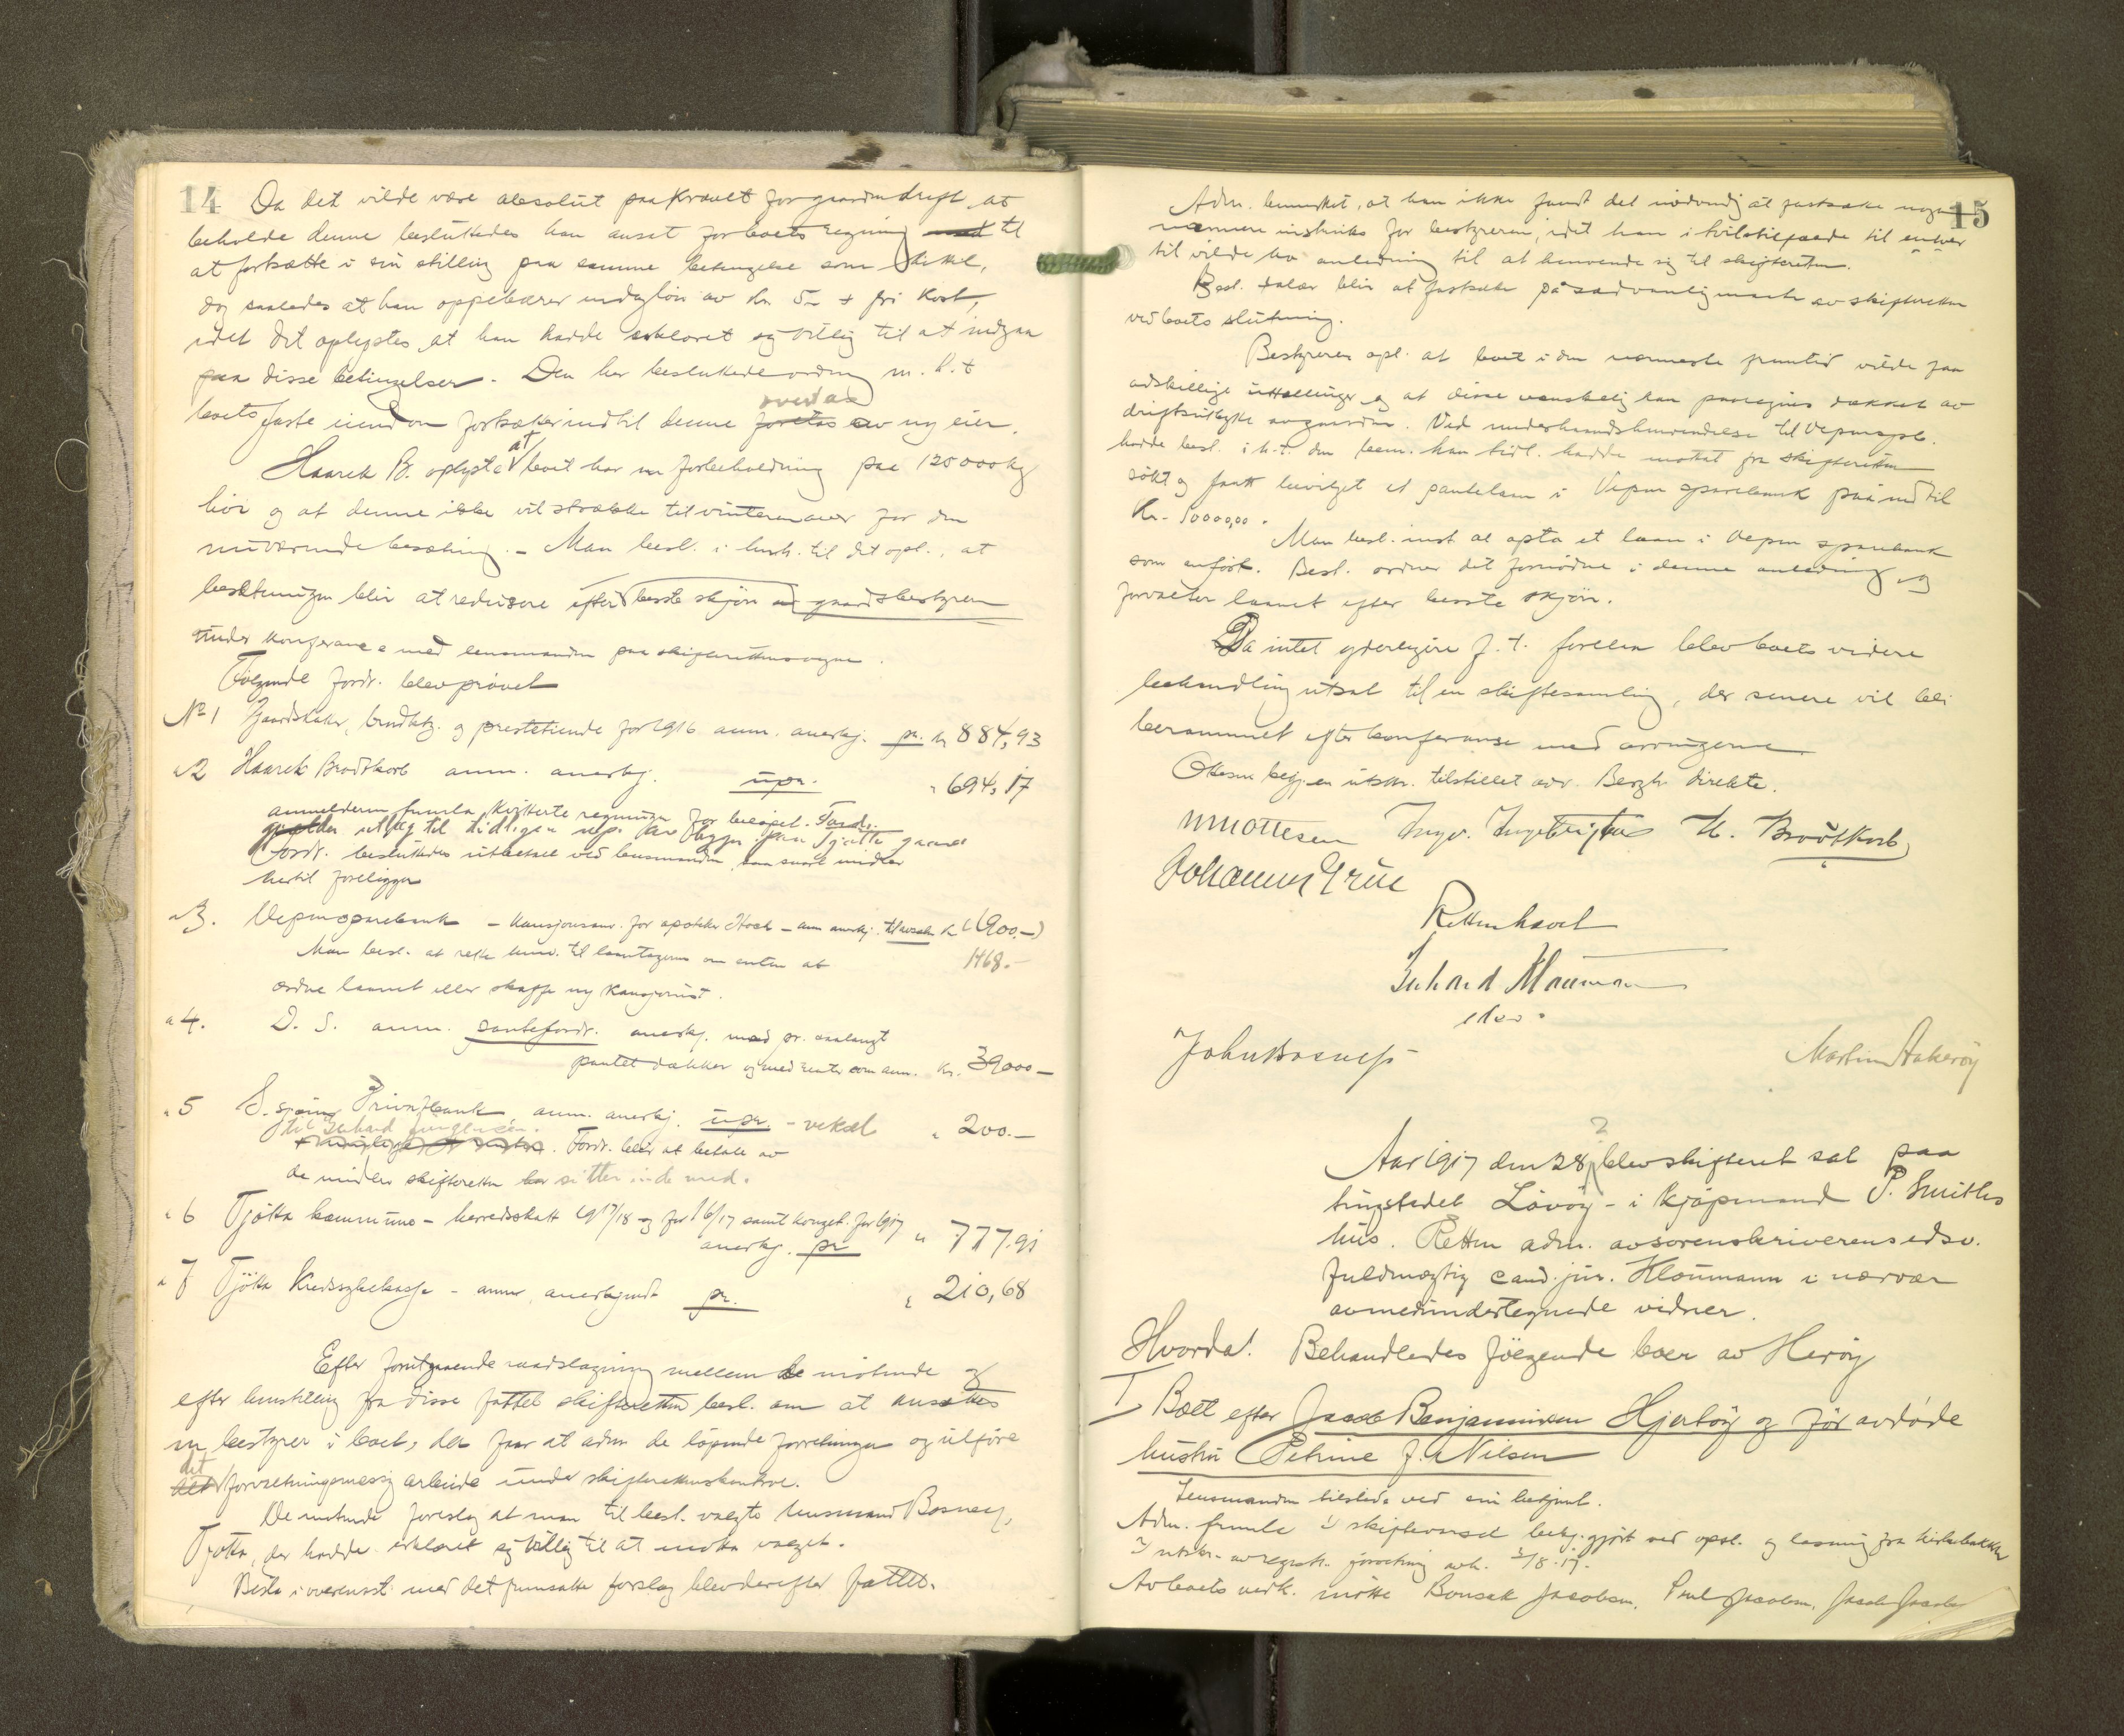 14
Da det vilde være absolut paakrævet for gaardens drift at
beholde denne besluttedes han ansat for boets regning til
at fortsætte i sin stilling paa samme betingelse som
dog saaledes at han oppebærer en dagløn av kr. 5 + fri kost,
idet det oplystes at han hadde erklæret sig villig til at indgaa
paa disse betingelser. Den her besluttede ordning m. h. t
boets faste eiendom fortsætter indtil denne overtas av ny eier.
Haarek B. oplyste at boet har en forbeholdning paa 125000 kg
høi og at denne ikke vil strække til vinteren over for den
nuværende besætning. - Man besl. i henh. til det opl., at
besætningen blir at redusere efter beste skjøn av gaardsbestyreren
under konferanse med lensmanden paa skifterettens vegne.
Følgende fordr. blev prøvet
No 1 Jordskatter, brudktg. og prestetiende for 1916 anm. anerkj. pr. kr 884,93
" 2 Haarek Brodtkorb anm. anerkj. upr. " 694,17
anmelderen fremla kvitterte regninger for beløpet. Fordr.
gjælder utlæg til tidligere Tjøtta gaard
Fordr. besluttedes utbetalt ved lensmanden saa snart midler
hertil foreligger
" 3. Vepsn sparebank - kausjonsanv. for apoteker - anm anerkj. kr (1900.-)
Man besl. at rette henv. til laantageren om enten at 1468.-
ordne laanet eller skaffe ny kausjonist.
" 4. D. S. anm. panteford. anerkj. med pr. saalangt
pantet dækker og med renter som anm. kr. 39000 -
" 5 S. sjøens Privatbank, anm. anerkj. upr. - veksel " 200.-
til Gerhard Jørgensen.
Fordr. blir at betale av
de midler skifteretten har sitter inde med.
" 6 Tjøtta kommune - herredsskatt 1917/18 og for 16/17 samt for 1917
anerkj. pr " 777.91
" 7 Tjøtta Kredssykekasse - anm, anerkjendt pr. " 210,68
Efter forutgaaende raadslagning mellem de møtende og
efter henstilling fra disse fattet skifteretten besl. om at ansættes
en bestyrer i boet, der faar at adm de løpende forretninger og utføre
det forretningsmæssig arbeide under skifterettens kontrol.
De møtende foreslog at man til best. valgte lensmand Bosness,
Tjøtta, der hadde erklæret sig villig til at motta valget.
Besl. i overensst. med det fremsatte forslag blev derefter fattet.
15
Adm. bemerket, at han ikke fandt det nødvendig at fastsætte nogen
nærmere instruks for bestyreren, idet han i tvilstilfælde til enhver
til vilde ha anledning til at henvende sig til skifteretten.
Best. salær blir at fastsætte på sædvanlig maate av skifteretten
ved boets slutning.
Bestyreren opl. at boet i den nærmeste fremtid vilde faa
adskillige utbetalinger og at disse vanskelig kan paaregnes dækket av
driftsutbytte av gaarden. Ved underhaandshenvendelse til Vepsn spb.
hadde best. i h. t. den bem. han tidl. hadde mottat fra skifteretten
søkt og faatt bevilget et pantelaan i Vepsn sparebank paa indtil
Kr. 10000,00.
Man besl. inst at opta et laan i Vepsn sparebank
som anført. Best. ordner det fornødne i denne anledning og
forvalter laanet efter beste skjøn.
Da intet yderligere f. t. forelaa blev boets videre
behandling utsat til en skiftesamling, der senere vil bli
berammet efter konferanse med arvingerne.
Ottesen begj. en utskr. tilstillet adv. Bergh direkte.
M Ottesen Ingv. Ingebrigtsen H. Brodtkorb
Johannes Grue
Retten hævet
Gerhard Mouman
John Bosness
Martin Aakerøy
Aar 1917 den 28/7 blev skifteret sat paa
tingstedet Løvøy - i kjøpmand P. Smiths
hus. Retten adm. av sorenskriverens edsv.
fuldmægtig cand. jur. Houmann i nærvær
av medundertegnede vidner.
Hvorda! Behandledes følgende boer av Herøy
I Boet efter Jacob Benjaminsen Hjertøy og før avdøde
hustru Petrine J. Nilsen
Lensmanden tilstede ved sin betjent.
Adm. fremla 1) skiftevarsel bekj.gjort ved opsl. og læsning fra kirkebakken
2) utskr. av registr. forretning avh. 3/8. 17.
Av boets vedk. møtte Bonsak Jacobsen, Paul Jacobsen, Jacob Jacobs